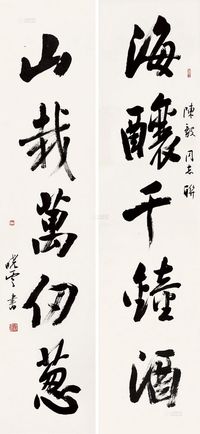 海釀千鐘酒
陳毅同志聯
山栽萬仞葱
曉雲書